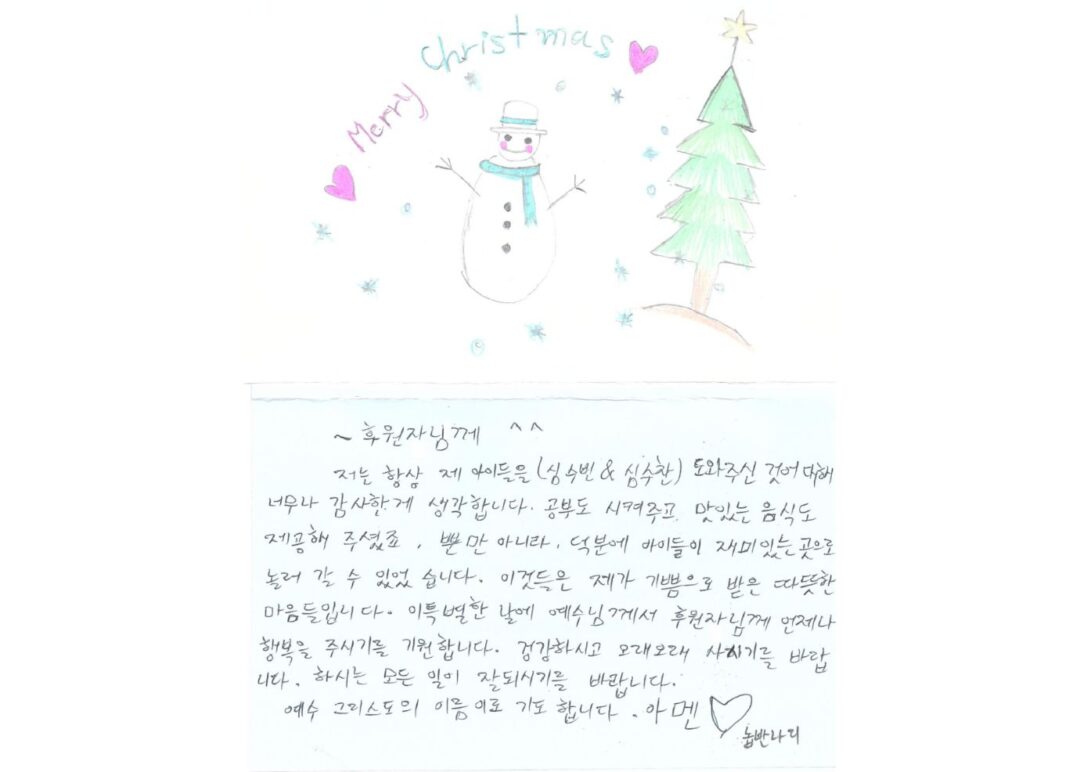 Merry Christmas
~ 후원자님께 ^^
저는 항상 제 아이들을 (심수빈 & 심수찬) 도와주신 것에 대해
너무나 감사한게 생각합니다. 공부도 시켜주고 맛있는 음식도
제공해 주셨죠. 뿐만 아니라, 덕분에 아이들이 재미있는 곳으로
놀러 갈 수 있었습니다. 이것들은 제가 기쁨으로 받은 따뜻한
마음들입니다. 이특별한 날에 예수님께서 후원자님께 언제나
행복을 주시기를 기원합니다. 건강하시고 오래오래 사시기를 바랍
니다. 하시는 모든 일이 잘되시기를 바랍니다.
예수 그리스도의 이름으로 기도 합니다. 아멘
놉반나리